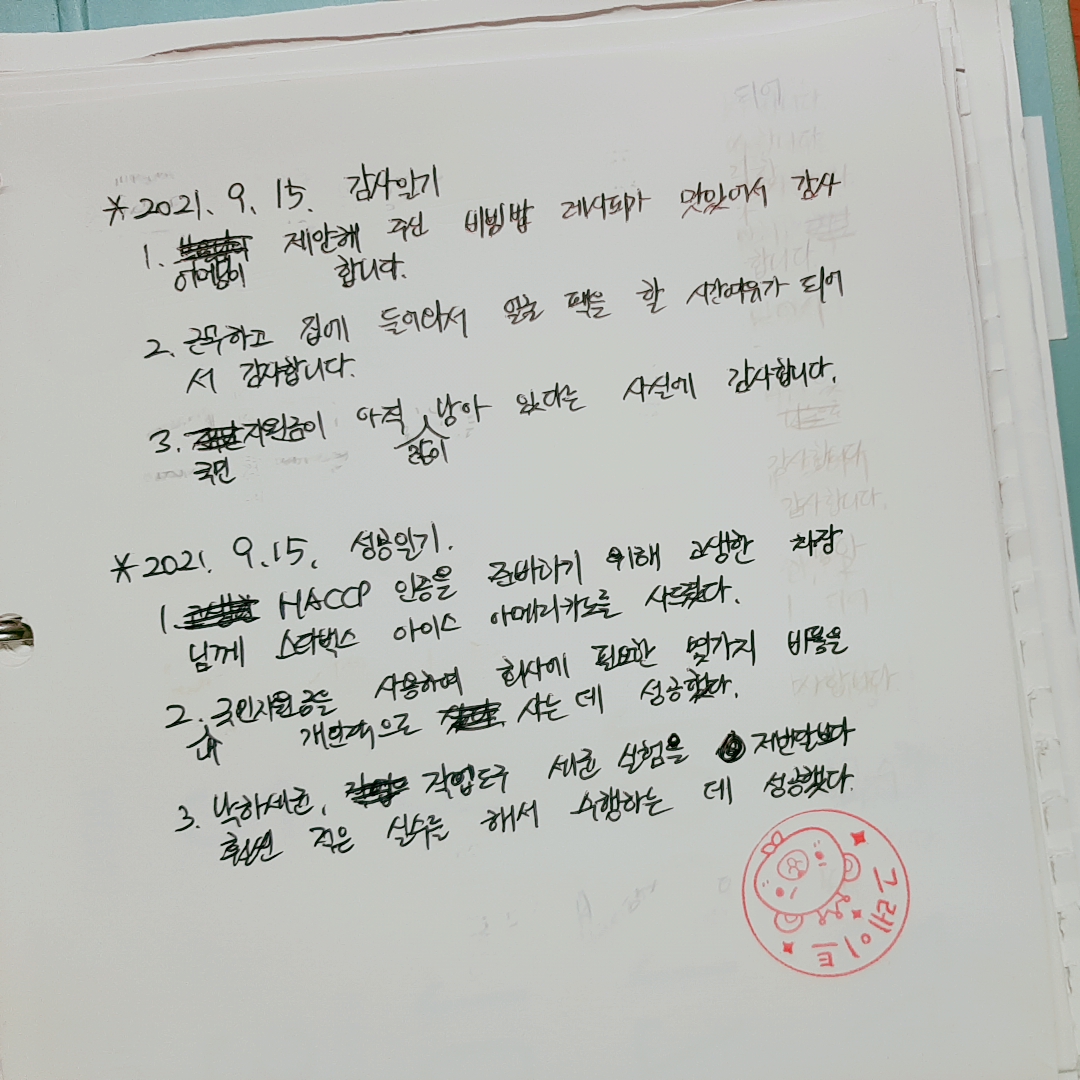 * 2021. 9. 15. 감사일기
1. 어머님이 제안해 주신 비빔밥 레시피가 맛있어서 감사
합니다.
2. 근무하고 집에 들어와서 얼굴 팩을 할 시간여유가 되어
서 감사합니다.
3. 국민지원금이 아직 많이 남아 있다는 사실에 감사합니다.
* 2021. 9. 15. 성공일기.
1. HACCP 인증을 준비하기 위해 고생한 차장
님께 스타벅스 아이스 아메리카노를 사드렸다.
2. 내 국민지원금을 사용하여 회사에 필요한 몇가지 비품을
개인적으로 사는 데 성공했다.
3. 낙하세균, 작업도구 세균 실험을 저번달보다
훨씬 적은 실수를 해서 수행하는 데 성공했다.
그레이트